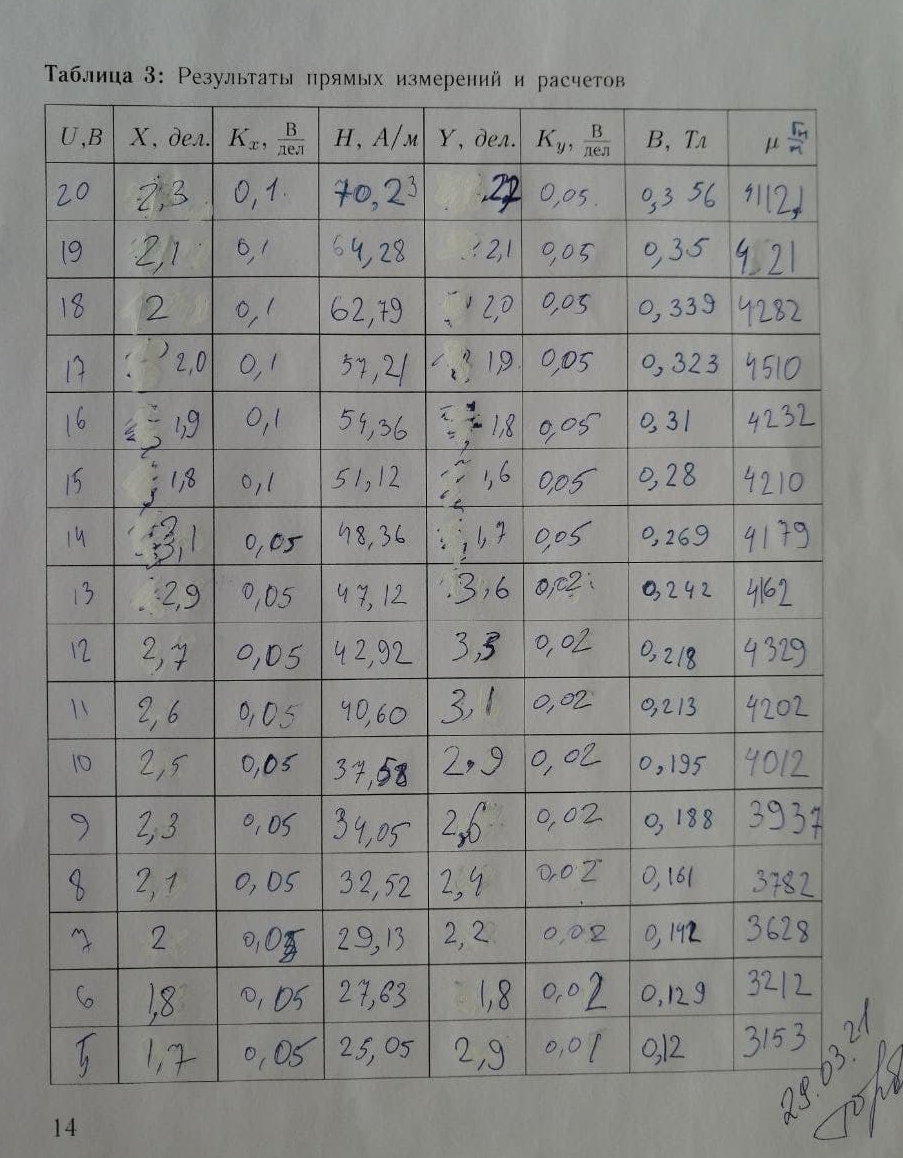 Таблица 3: Результаты прямых измерений и расчетов
U,В X, дел. Kx, В/дел H, А/м Y, дел. Ky, В/дел B, Тл μ Гн/м
20 2,3 0,1 70,23 22 0,05 0,356 4121
19 2,1 0,1 64,28 2,1 0,05 0,35 4321
18 2 0,1 62,79 2,0 0,05 0,339 4282
17 2,0 0,1 57,21 1,9 0,05 0,323 4510
16 1,9 0,1 54,36 1,8 0,05 0,31 4232
15 1,8 0,1 51,12 1,6 0,05 0,28 4210
14 3,1 0,05 48,36 1,7 0,05 0,269 4179
13 2,9 0,05 47,12 3,6 0,02 0,242 4162
12 2,7 0,05 42,92 3,3 0,02 0,218 4329
11 2,6 0,05 40,60 3,1 0,02 0,213 4202
10 2,5 0,05 37,58 2,9 0,02 0,195 4012
9 2,3 0,05 34,05 2,6 0,02 0,188 3937
8 2,1 0,05 32,52 2,4 0,02 0,161 3782
7 2 0,05 29,13 2,2 0,02 0,142 3628
6 1,8 0,05 27,63 1,8 0,02 0,129 3212
5 1,7 0,05 25,05 2,9 0,01 0,12 3153
29.03.21
14